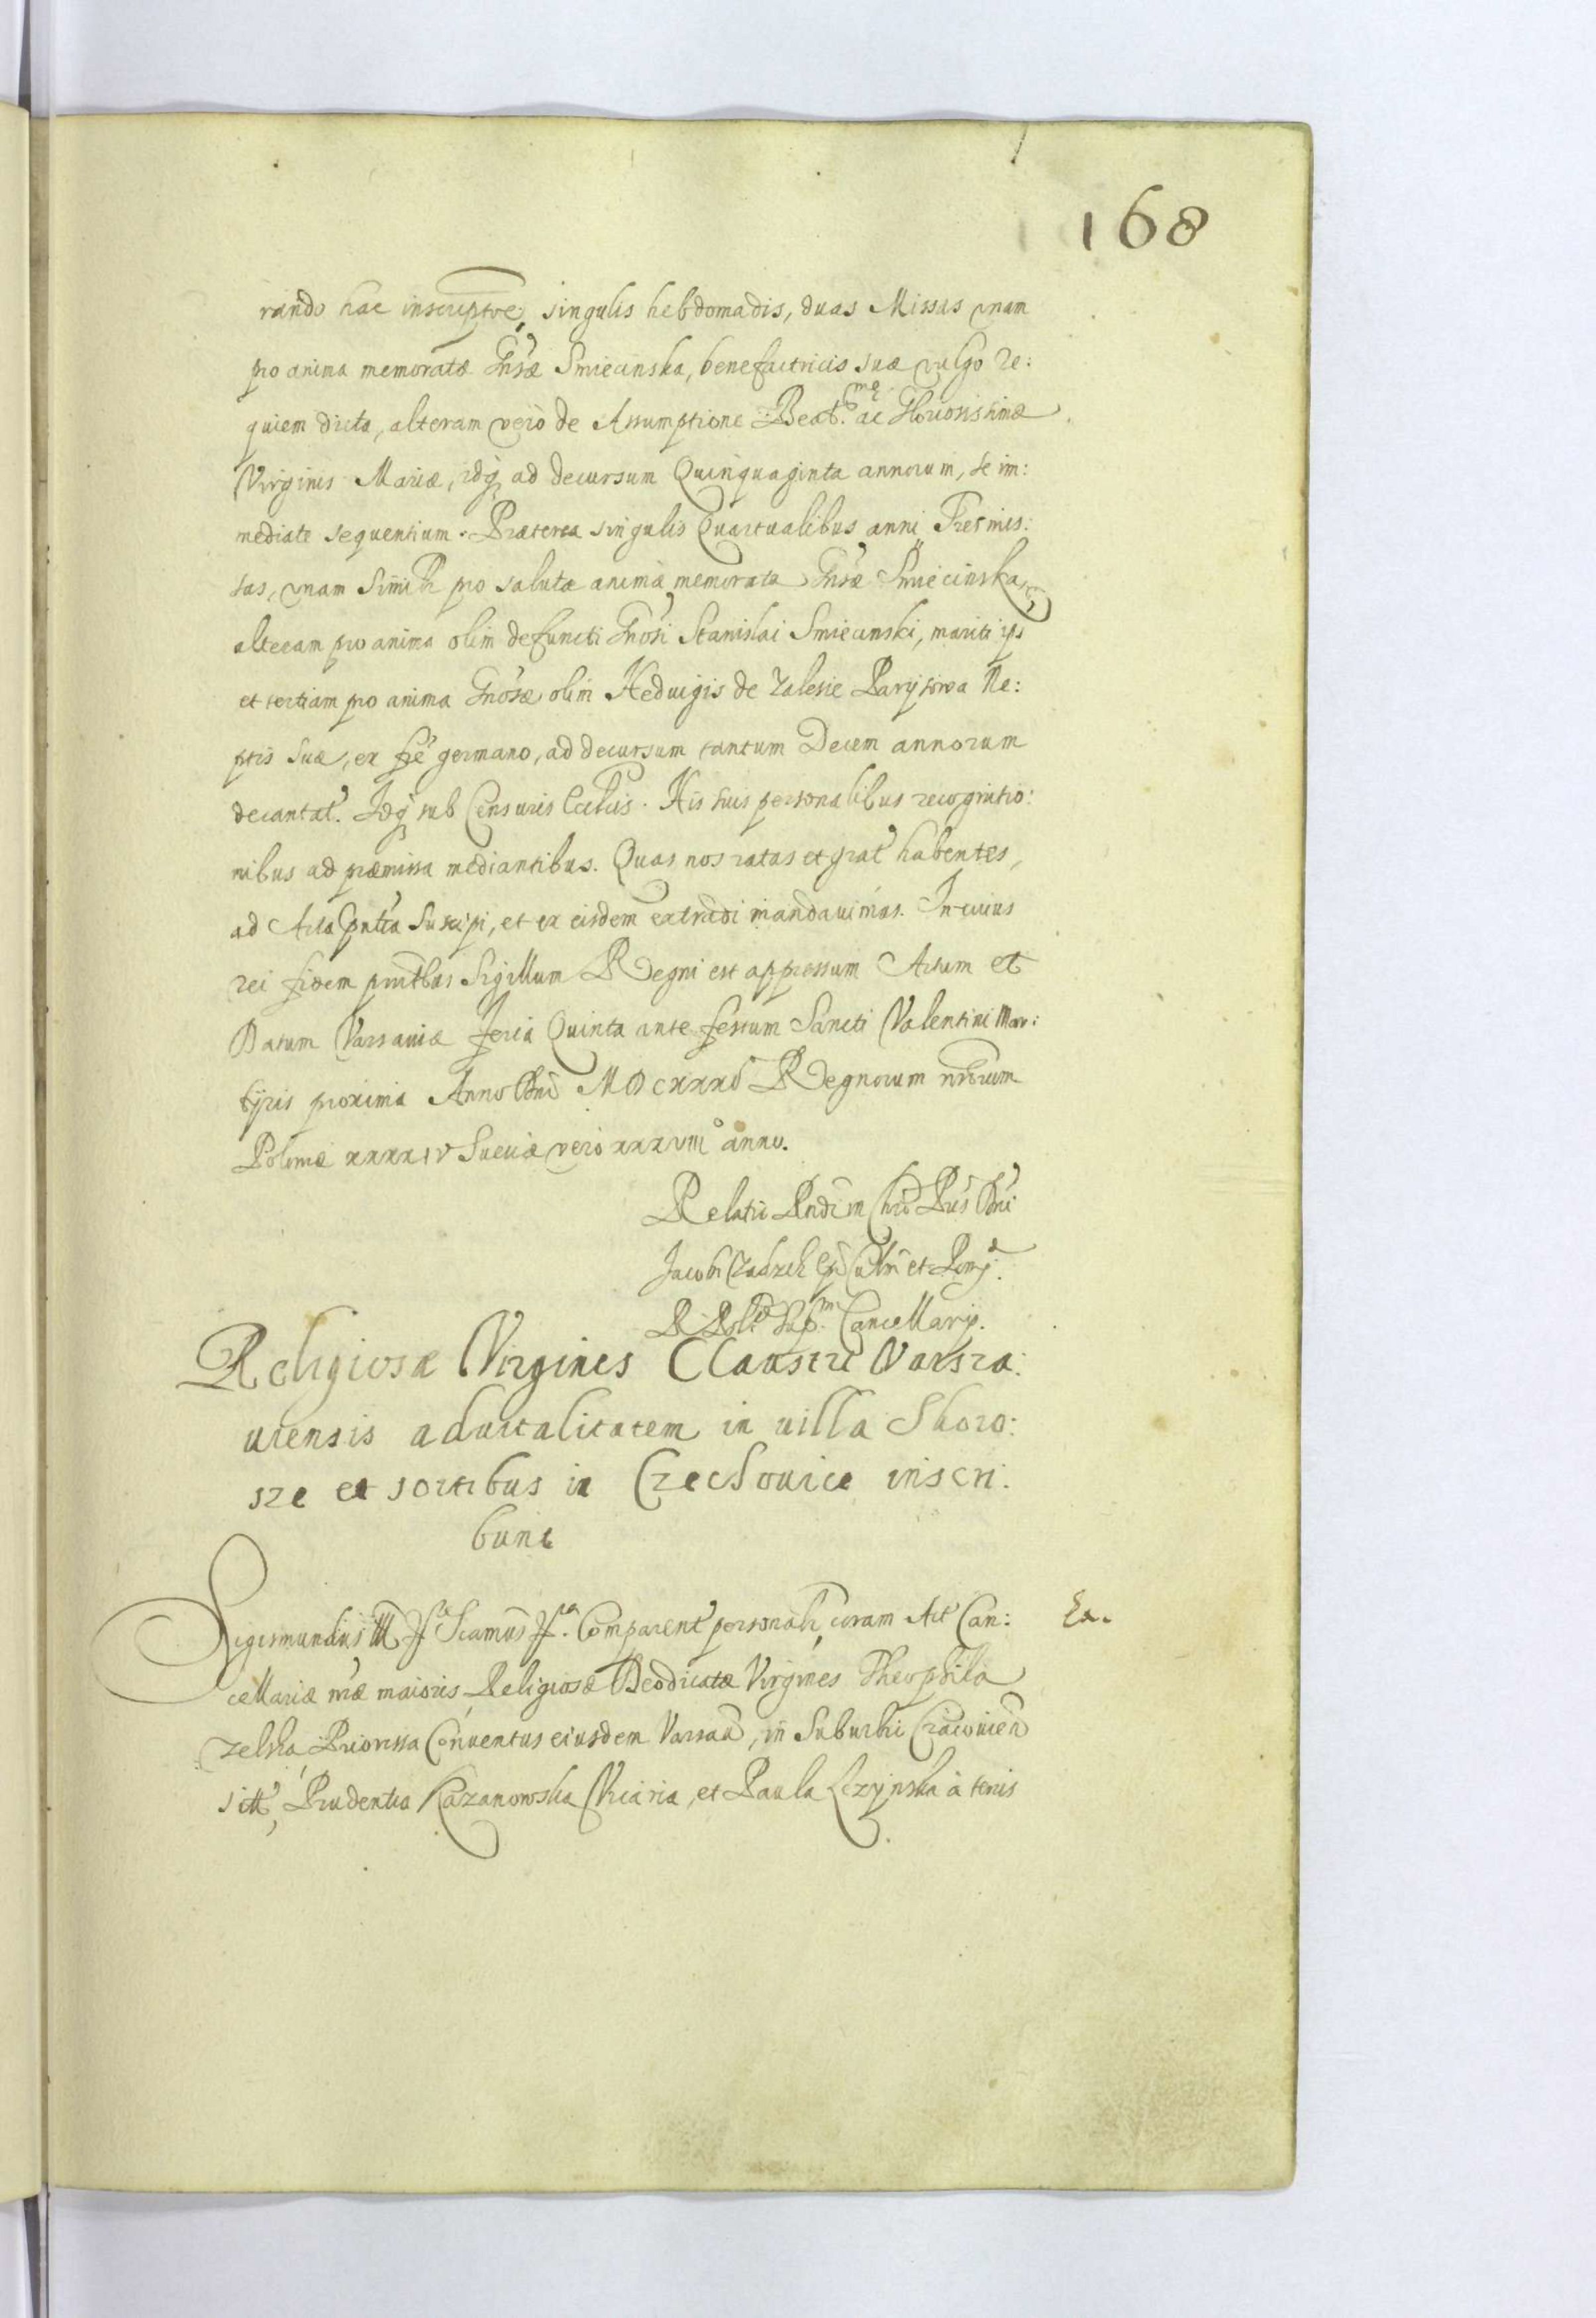 168
rando hac inscriptõe, singulis hebdomadis, duas Missas vnam
pro anima memoratæ Gnsæ Smiecinska, benefactricis suæ vulgo Re:
quiem dicta, alteram verò de Assumptione Beat.mæ ac Gloriosissimæ
Virginis Mariæ, idq ad decursum Quinquaginta annorum, se im:
mediate sequentium. Præterea singulis Quartualibus anni Tres mis:
sas, vnam simili pro salute animæ memoratæ Gnsæ Smiecinska,
alteram pro anima olim defuncti Gnosi Stanislai Smiecinski, mariti ips
et tertiam pro anima Gnosæ olim Heduigis de Zalesie Parijsowa Ne:
ptis suæ, ex fre germano, ad decursum tantum Decem annorum
decantat. Idq sub Censuris Ecclicis. His suis personalibus recognitio:
nibus ad præmissa mediantibus. Quas nos ratas et grat habentes,
ad Acta pntia suscipi, et ex eisdem extradi mandauimus. In cuius
rei fidem pntibus Sigillum Regni est appressum Actum et
Datum Varsauiæ feria Quinta ante festum Sancti Valentini Mar:
tyris proxima Anno Dni MDCXXXI Regnorum nrorum
Poloniæ XXXXIV Sueciæ vero XXXVIII anno.
Relatio Rndi in Chro Pris Dni
Jacobi Zadzik Epi Culm et Pom.
R Poliæ Sup.m Cancellarij.
Religiosæ Virgines Claustri Varsza:
uiensis aduitalitatem in uilla Skoro:
sze et sortibus in Czechouice inscri:
bunt
Sigismundus III. Significamus Comparent personalr coram Act Can: Ex.
cellariæ nræ maioris Religiosæ Deodicatæ Virgines Theophila
Zelska Priorissa Conuentus eiusdem Varsau, in Suburbi Cracouien
sitt, Prudentia Kazanowska Vicaria, et Paula